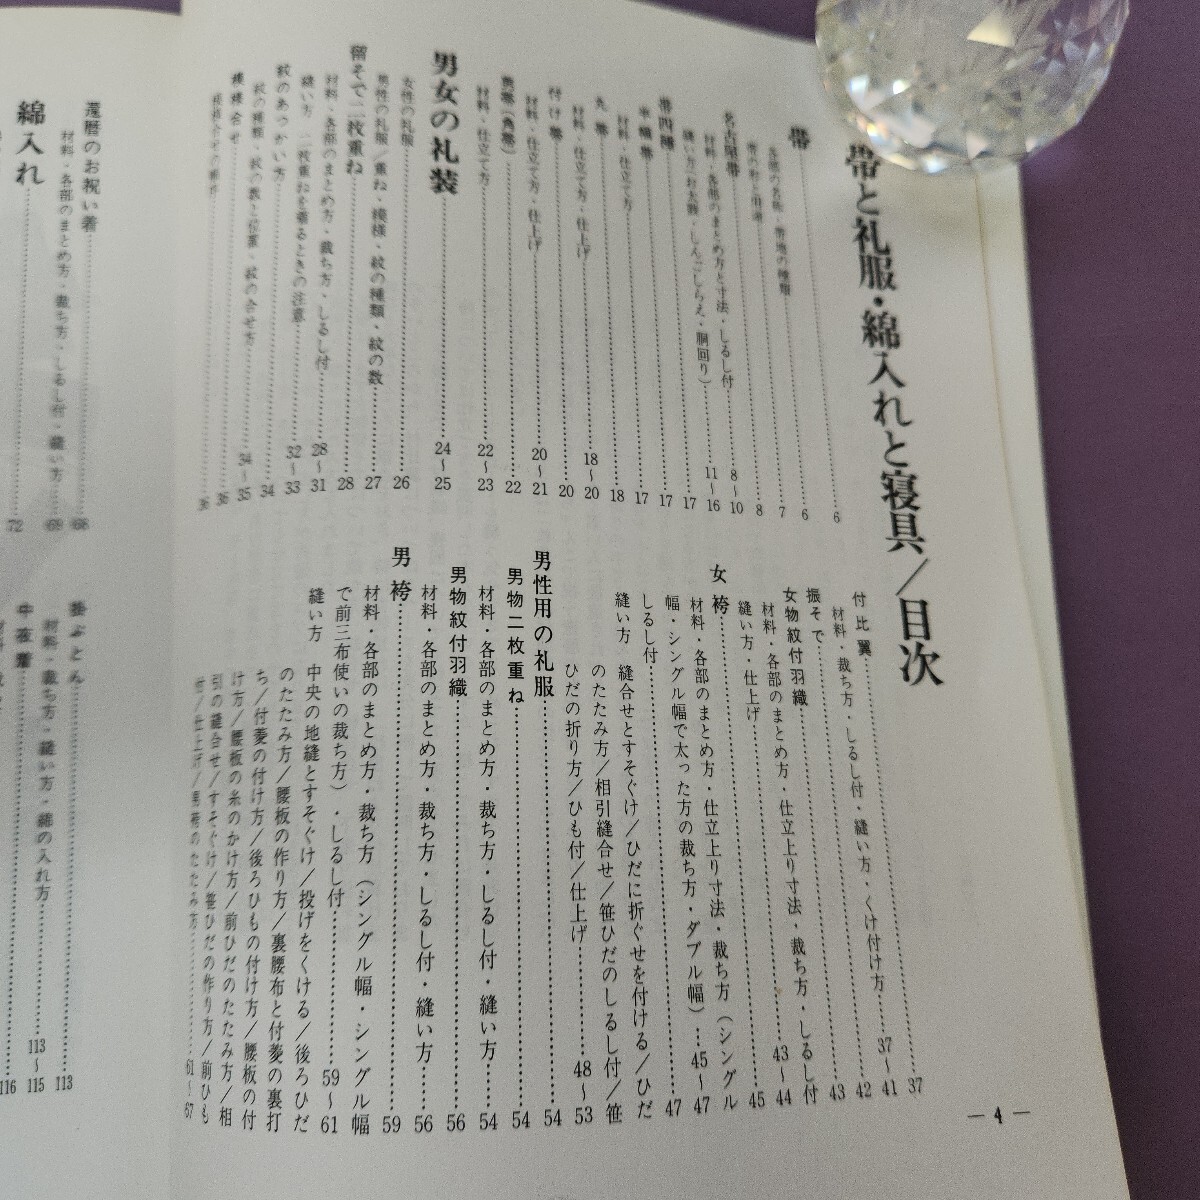 帯と礼服・綿入れと寝具／目次
帯……6
各部の名称・帯地の種類……6
帯の形と用途……7
名古屋帯……8
材料・各部のまとめ方と寸法・しるし付……8～10
縫い方(お太鼓・しんごしらえ・胴回り)……11～16
……17
半幅帯……17
材料・仕立て方……17
丸帯……18
材料・仕立て方・仕上げ……18～20
付け帯……20
材料・仕立て方・仕上げ……20～21
男帯(角帯)……22
材料・仕立て方……22～23
男女の礼装……24～25
女性の礼服……26
男性の礼服／重ね・模様・紋の種類・紋の数……27
留そで二枚重ね……28
材料・各部のまとめ方・裁ち方・しるし付……28～31
縫い方 二枚重ねを着るときの注意……32～33
紋のあつかい方……34
紋の種類・紋の数と位置・紋の合せ方……34～35
模様合せ……36
模様合せの要点……36
付比翼……37
材料・裁ち方・しるし付・縫い方・くけ付け方……37～41
振そで……42
女物紋付羽織……43
材料・各部のまとめ方・仕立上り寸法・裁ち方・しるし付……43～44
縫い方・仕上げ……45
女袴……45～47
材料・各部のまとめ方・仕立上り寸法・裁ち方(シングル
幅・シングル幅で太った方の裁ち方・ダブル幅)…45～47
しるし付……47
縫い方 縫合せとすそぐけ／ひだに折ぐせを付ける／ひだ
のたたみ方／相引縫合せ／笹ひだのしるし付／笹
ひだの折り方／ひも付／仕上げ……48～53
男性用の礼服……54
男物二枚重ね……54
材料・各部のまとめ方・裁ち方・しるし付・縫い方……54
男物紋付羽織……56
材料・各部のまとめ方・裁ち方・しるし付・縫い方……56
男袴……59
材料・各部のまとめ方・裁ち方(シングル幅・シングル幅
で前三布使いの裁ち方)・しるし付……59～61
縫い方 中央の地縫とすそぐけ／投げをくける／後ろひだ
のたたみ方／腰板の作り方／裏腰布と付菱の裏打
ち／付菱の付け方／後ろひもの付け方／腰板の付
け方／腰板の糸のかけ方／前ひだのたたみ方／相
引の縫合せ／すそぐけ／笹ひだの作り方／前ひも
せ／仕上げ／男袴のたたみ方……61～67
— 4 —
還暦のお祝い着……68
材料・各部のまとめ方・裁ち方・しるし付・縫い方……69
綿入れ……72
掛ぶとん……113
材料・裁ち方・縫い方・綿の入れ方……113～115
中夜着……116